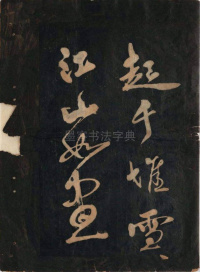 起千堆雪
江山如画
墨亭书法字典